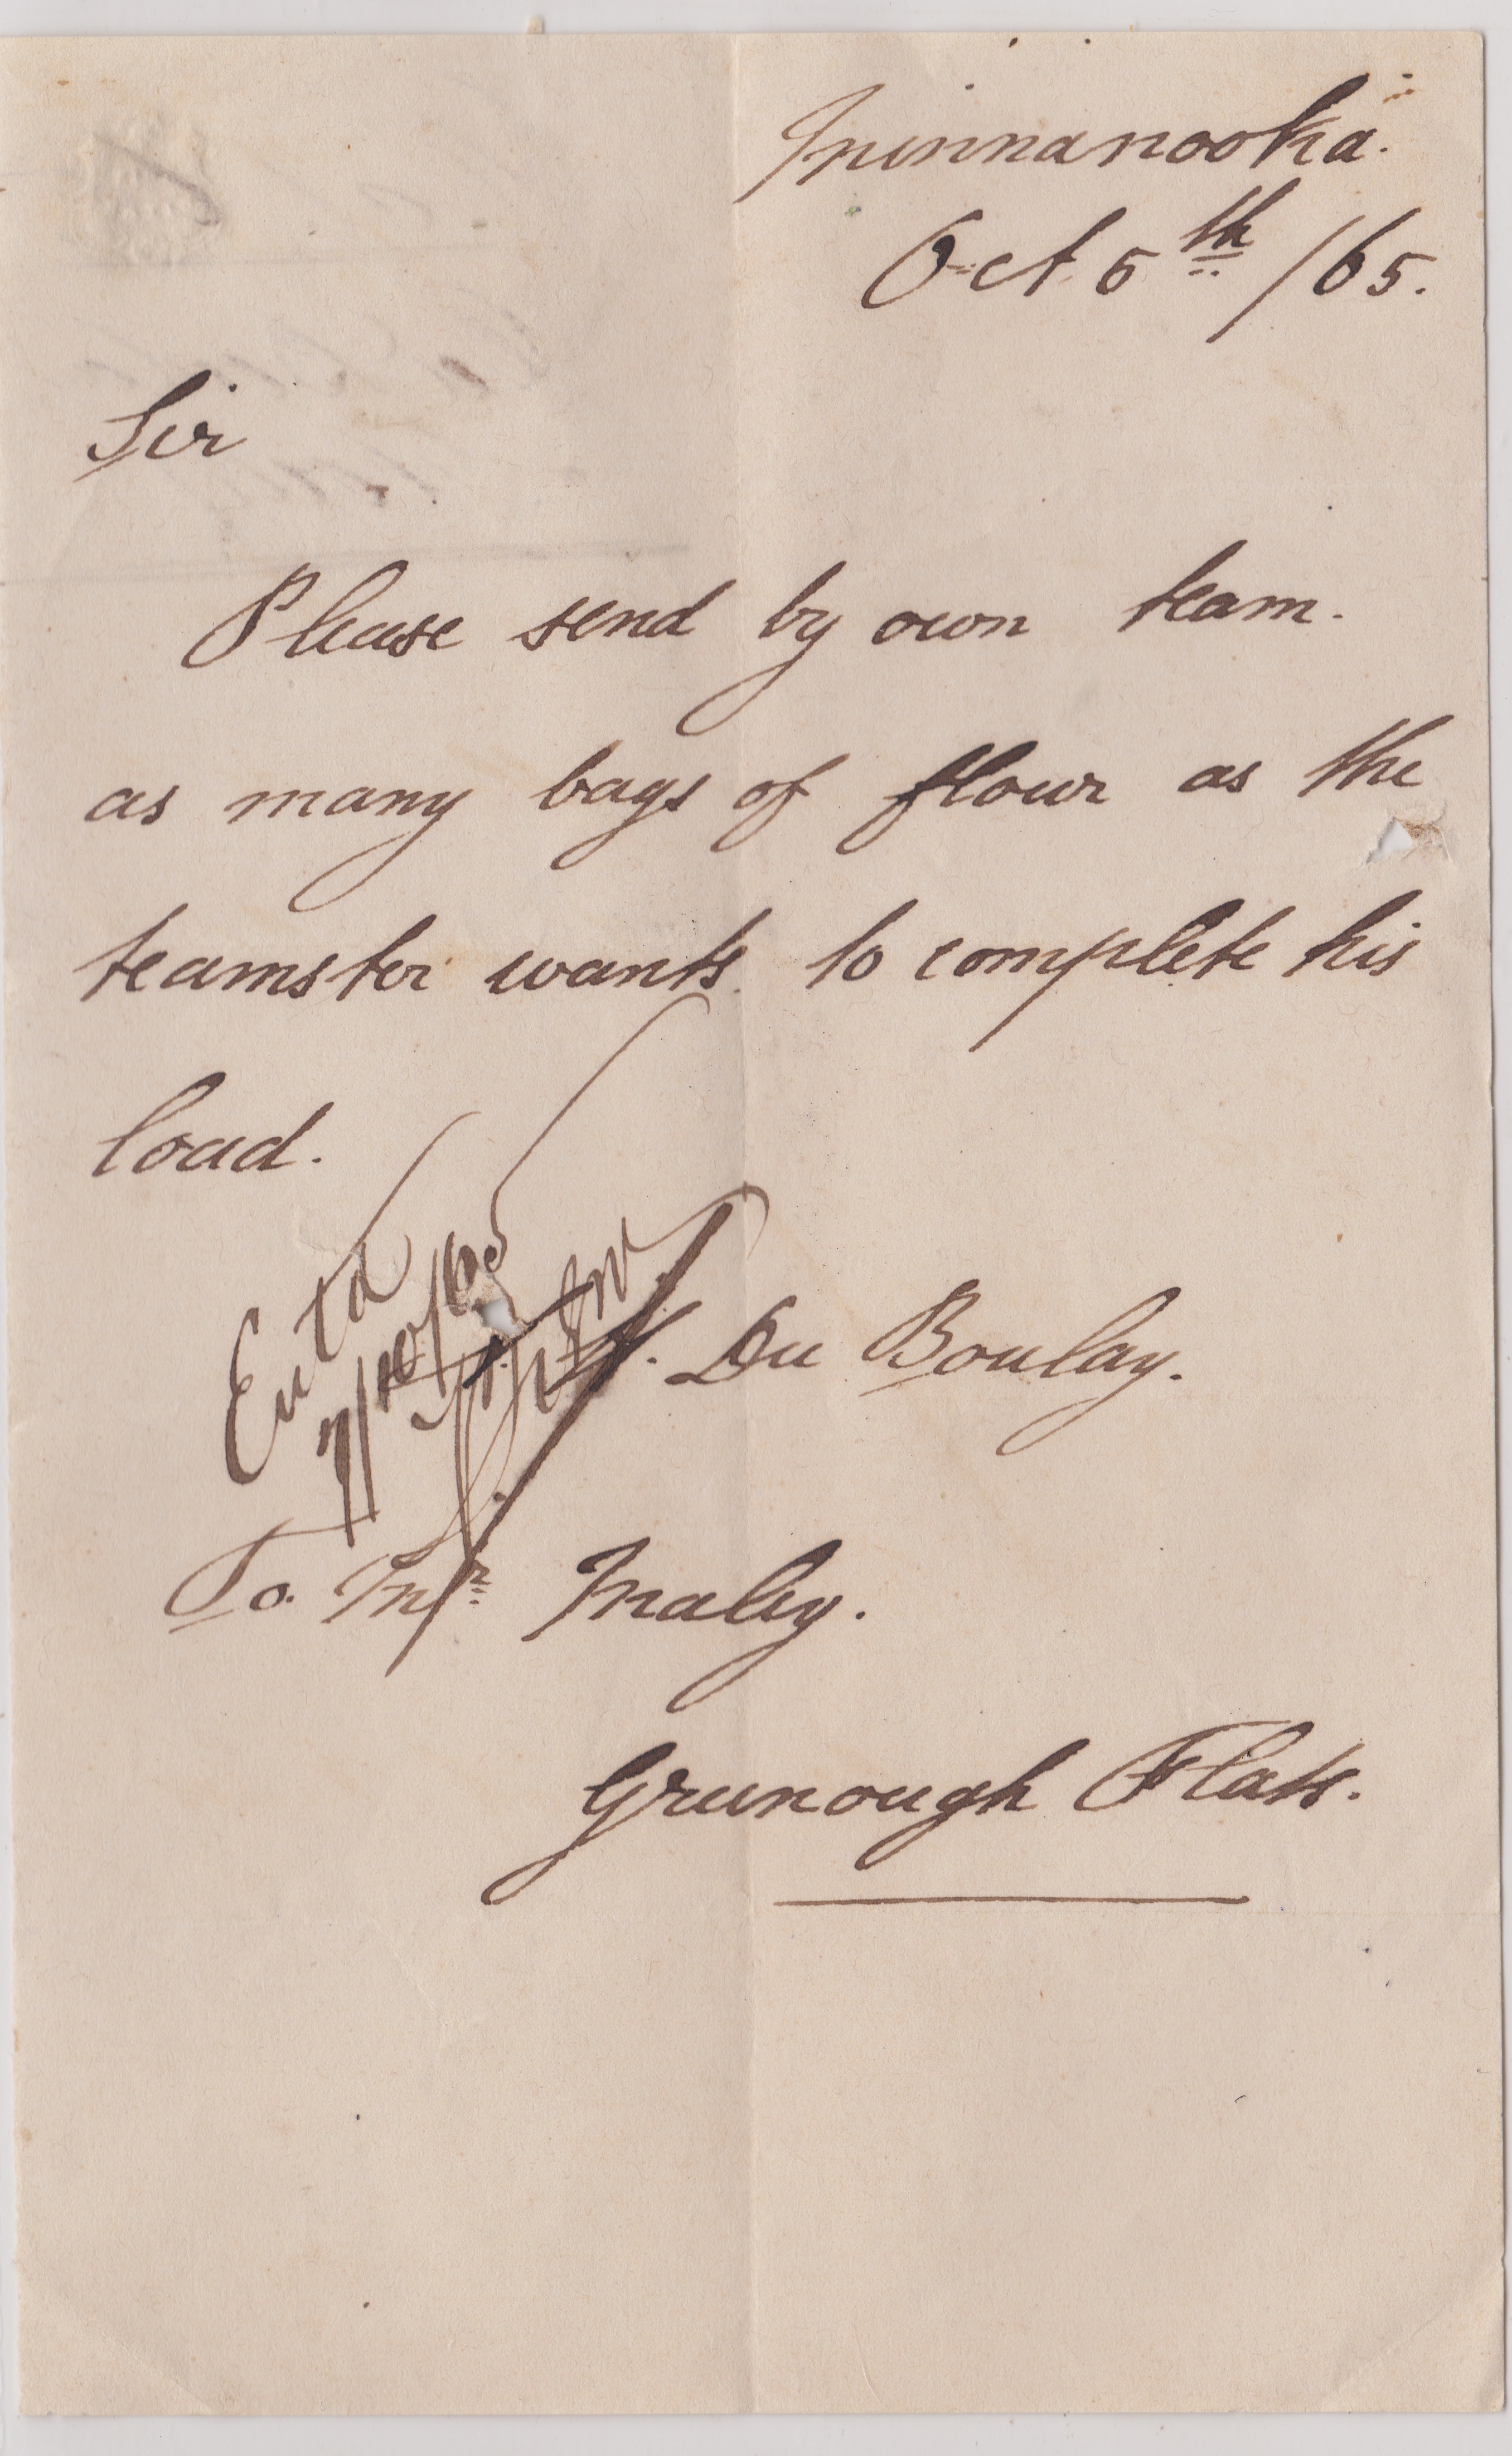 Minnanooka.
Oct 5th /65.
Sir
Please send by own team.
as many bags of flour as the
teamster wants to complete his
load.
Entd
7/10/65
Du Boulay.
To. Mr Maley.
Greenough Flats.